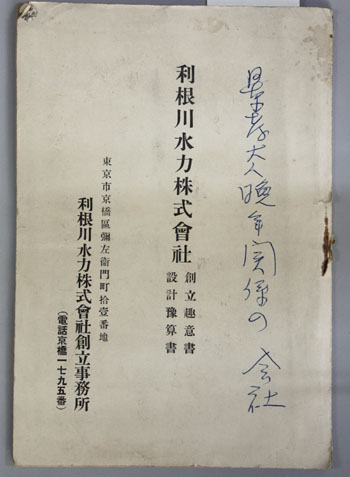 大人晩年関係の会社
利根川水力株式會社
創立趣意書
設計豫算書
東京市京橋區彌左衞門町拾壹番地
利根川水力株式會社創立事務所
（電話京橋一七九五番）